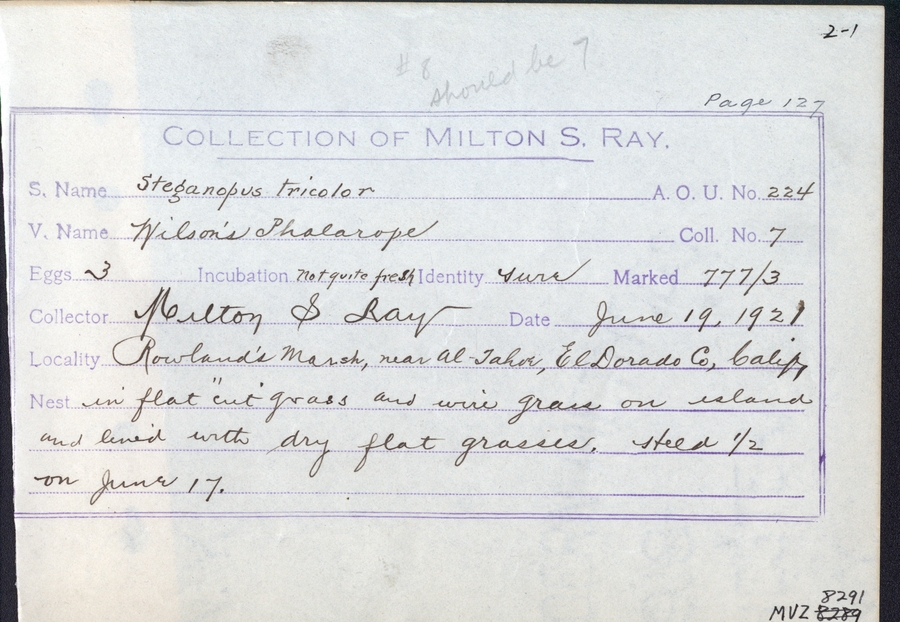 2-1
#8
should be 7
Page 127
COLLECTION OF MILTON S. RAY.
S. Name Steganopus tricolor A. O. U. No. 224
V. Name Wilson's Phalarope Coll. No. 7
Eggs 3 Incubation not quite fresh Identity sure Marked 777/3
Collector Milton S Ray Date June 19, 1921
Locality Rowland's Marsh, near Al-Tahoe, El Dorado Co, Calif,
Nest in flat "cut" grass and wire grass on island
and lined with dry flat grasses. Held 1/2
on June 17.
8291
MVZ 8289